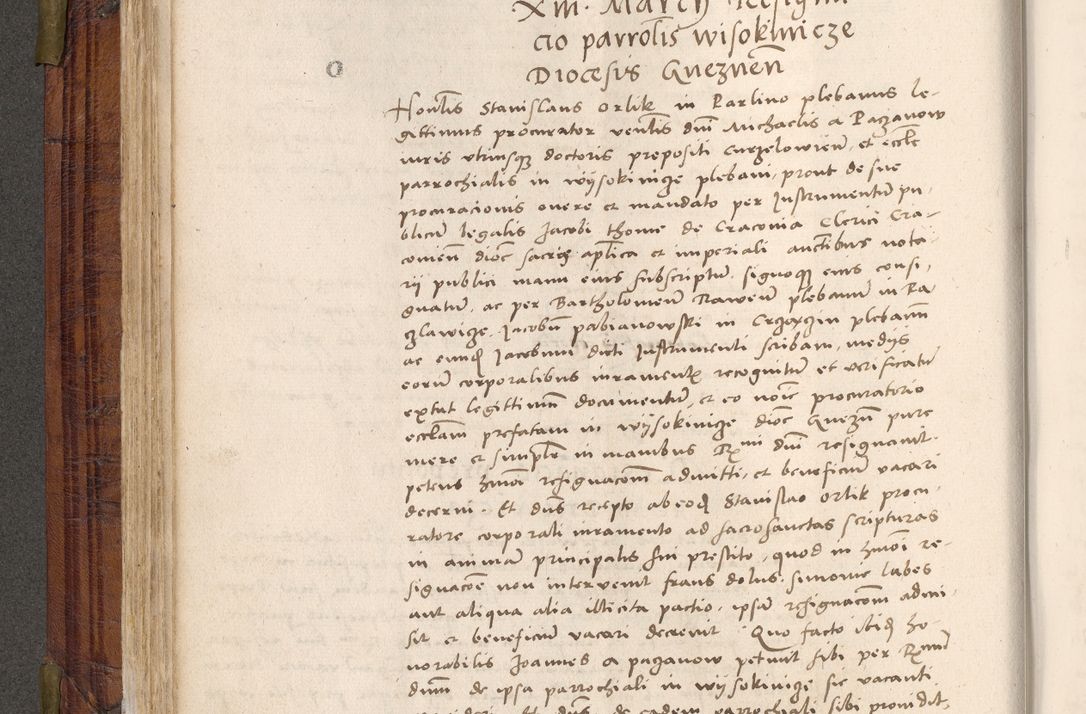 XIII. March Resigna
cio parrotlis wisokinicze
Diocesis Gneznen̄
Honlis Stanislaus Orlik in Karlino plebanus le-
gittimus procurator venlis dnī Michaelis a Paczanow
iuris utriusqz doctoris prepositi Curzelowien̄, et eccle
parrochialis in wÿsokinicze plebani, prout de sue
procuracionis onere et mandato per Instrumentū pu-
blicū legalis Jacobi thome de Cracovia Clerici Cra-
covien̄ dioc sacris aplica et imperiali auctibus nota
rii publici manu eius subscriptū signoqz eius consi-
gnatum, ac per Bartholomeū plebanū in Ra
czlawicze, Jacobū pabianowski in plebanū
ac eundē Jacobum dicti Instrumenti scribam, medÿs
eorū corporalibus iuramentis recognitū et verificatū
extat legittimū documentū, et eo noie procuratorio
eccliam prefatam in wÿsokinicze dioc Gnezn̄ pure
mere et simplr in manibus Rmi dnī resignavit.
petens hmōi resignacōem admitti, et beneficiū vacari
decerni. Et dūs recepto ab eodē Stanislao Orlik procu-
ratore corporali iuramento ad sacrosanctas scripturas
in animam principalis sui prestito, quod in hmōi re-
signacōe non intervenit fraus dolus simonie labes
aut aliqua alia illicita pactio, ipsam resignacōem admi-
sit et beneficiū vacari decrevit. Quo facto ibidē ho-
norabilis Joannes a paczanow petivit sibi per Rmum
dnum de ipsa parrochiali in wÿsokinicze sic vacanti
Et dūs de eadem parrochiali sibi providit